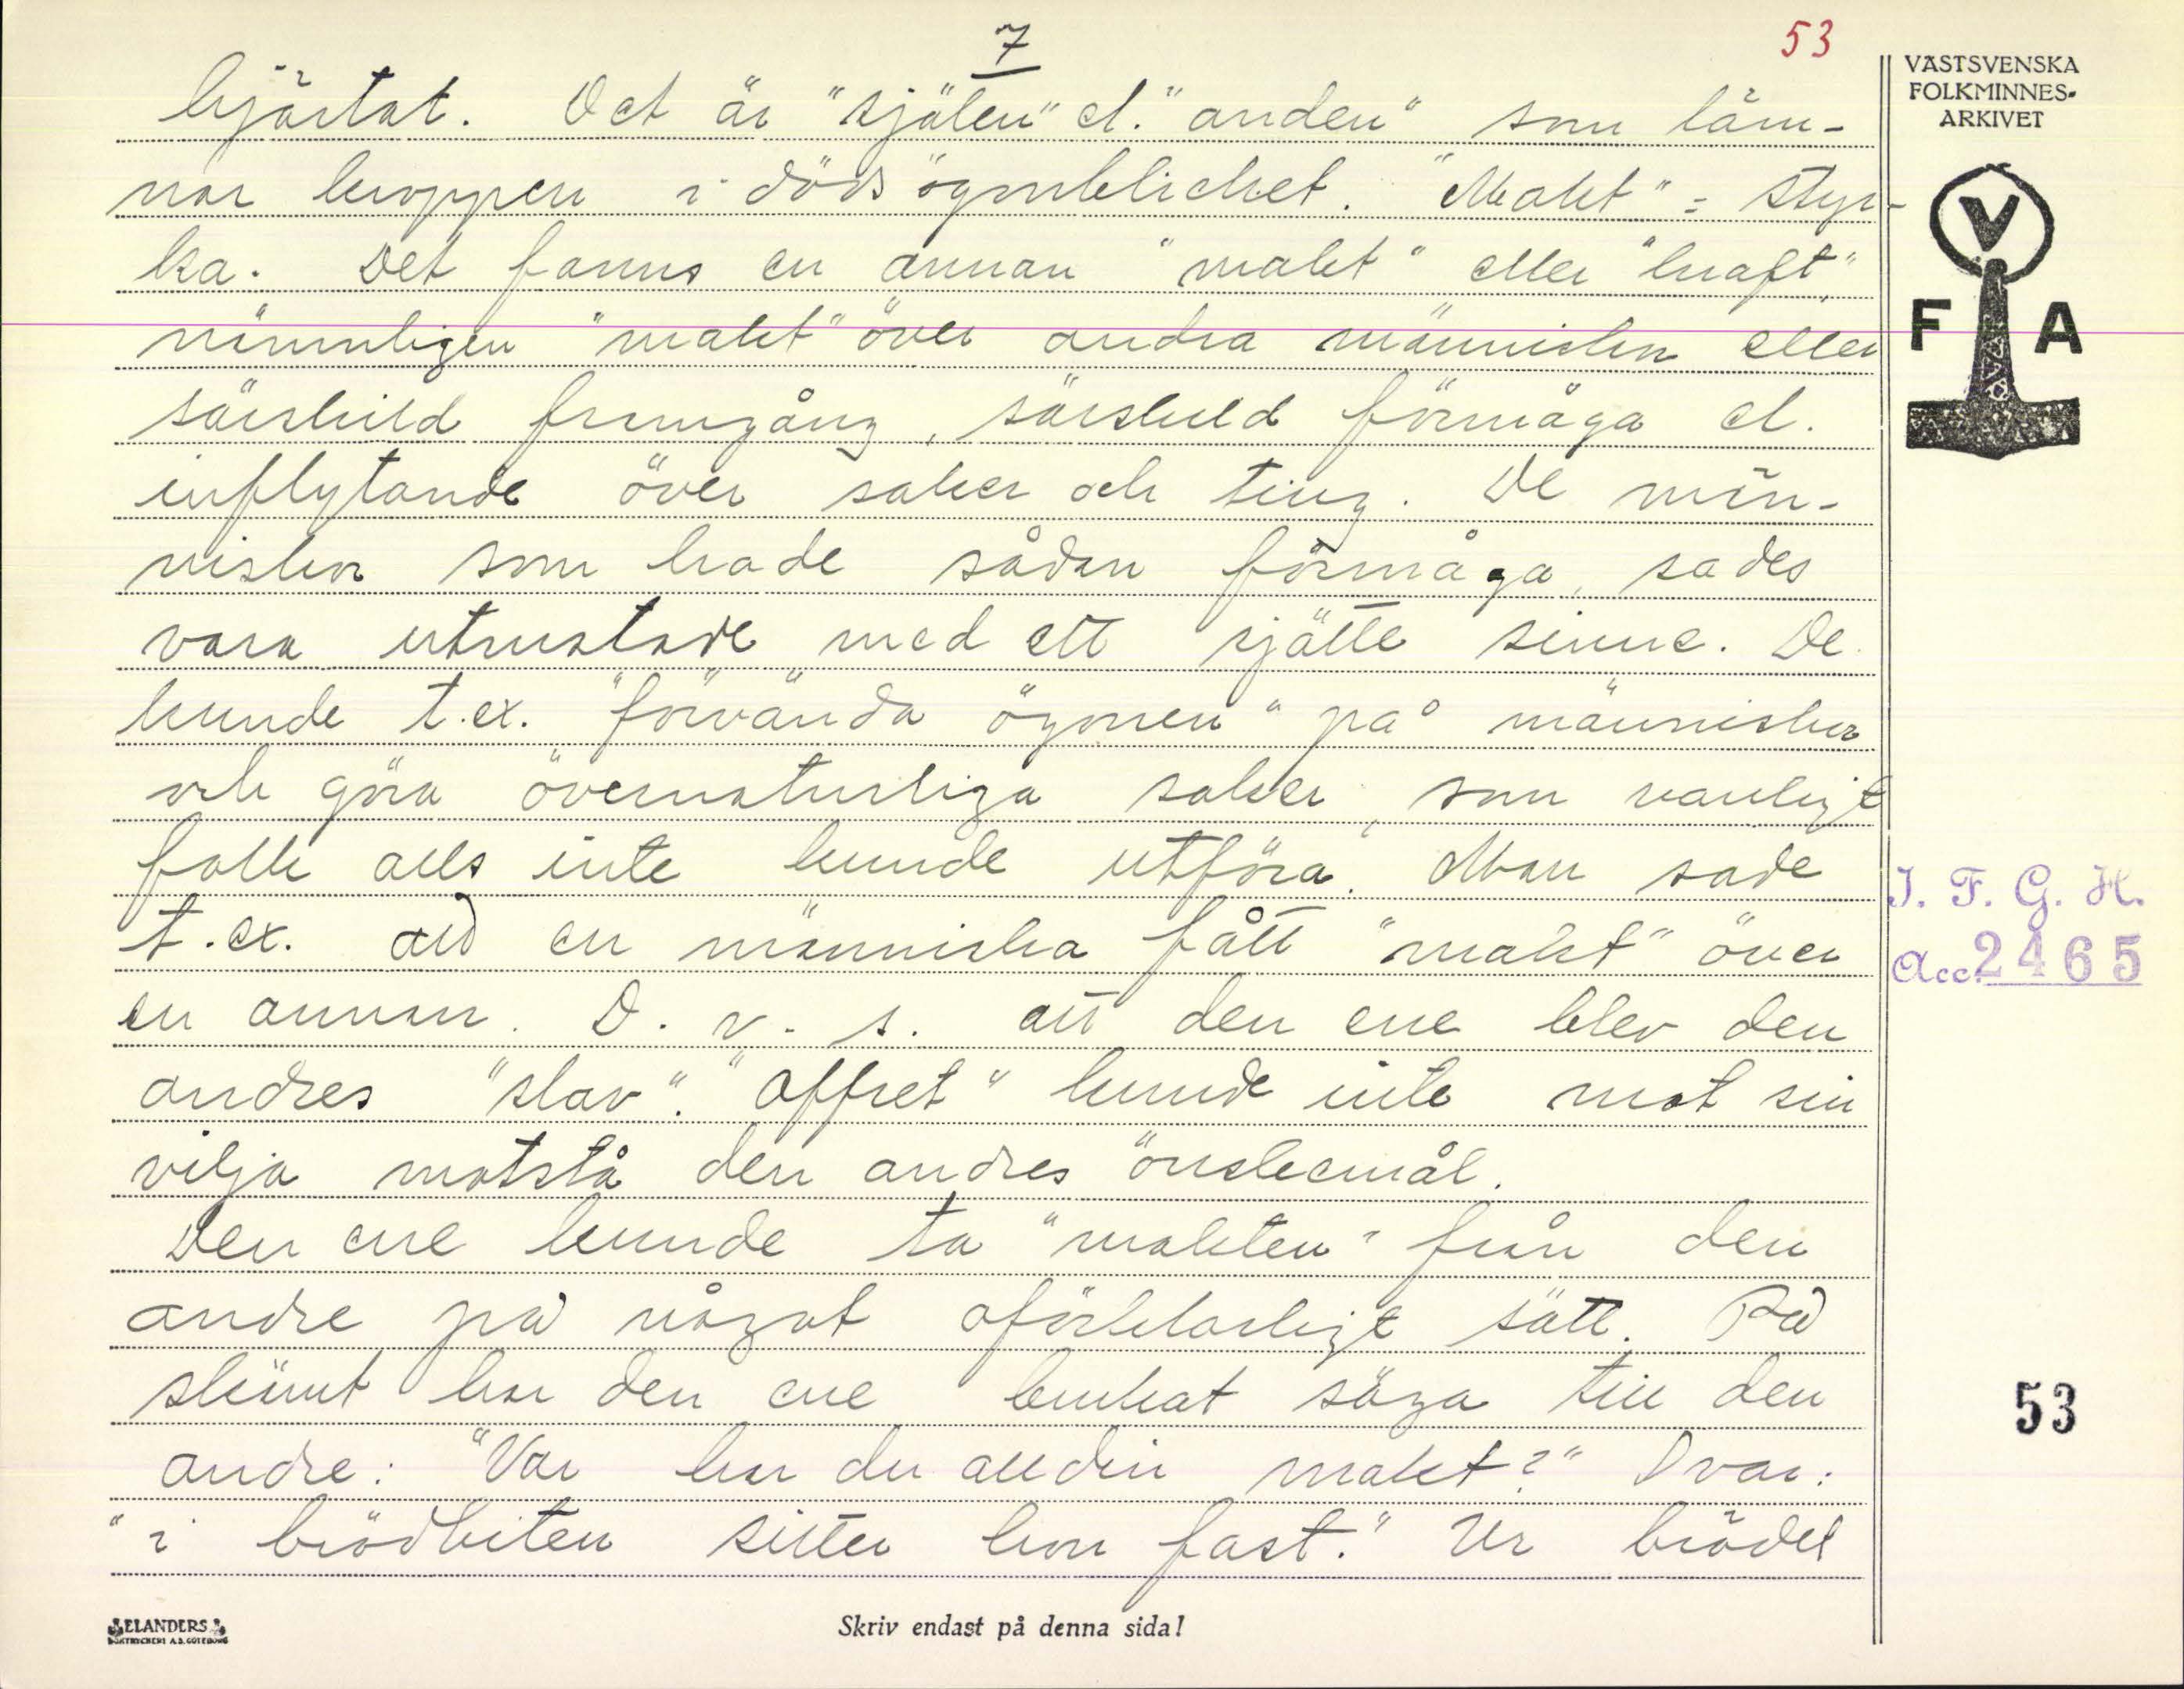 7
53
hjärtat. Det är "själen" el. "anden" som läm-
nar kroppen i dödsögonblicket. "Makt" = styr-
ka. Det fanns en annan "makt" eller "kraft",
nämnligen "makt" över andra människor eller
särskild framgång, särskild förmåga el.
inflytande över saker och ting. De män-
niskor som hade sådan förmåga, sades
vara utrustade med ett sjätte sinne. De
kunde t.ex. "förvända ögonen" på människor
och göra övernaturliga saker, som vanligt
folk alls inte kunde utföra. Man sade
t.ex. att en människa fått "makt" över
en annan. D. v. s. att den ene blev den
andres "slav". "Offret" kunde inte mot sin
vilja motstå den andres önskemål.
Den ene kunde ta "makten" från den
andre på något oförklarligt sätt. På
skämt har den ene brukat säga till den
andre: "Var har du all din makt?" Svar:
"i brödbiten sitter hon fast." Ur brödet
VÄSTSVENSKA
FOLKMINNES-
ARKIVET
V
F A
I. F. G. H.
Acc. 2465
53
ELANDERS
BOKTRYCKERI A.B. GÖTEBORG
Skriv endast på denna sida!